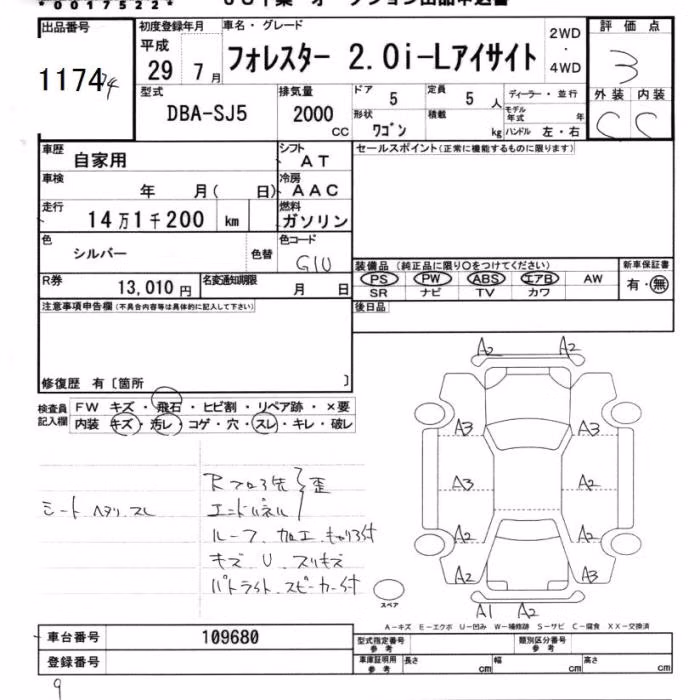 *0017522*
出品番号 初度登録年月 車名・グレード 2WD・4WD 評価点
11744 平成 29 7月 フォレスター 2.0i-Lアイサイト 3
型式 排気量 ドア 5 定員 5 人 ディーラー・並行 外装 内装
DBA-SJ5 2000 CC 形状 ワゴン 積載 kg モデル年式 年 ハンドル 左・右 C C
車歴 自家用 シフト AT セールスポイント(正常に機能するものに限ります)
車検 年 月( 日) 冷房 AAC
走行 14万1千200 km 燃料 ガソリン
色 シルバー 色替 色コード G1U
装備品 (純正品に限り○をつけてください) 新車保証書
R券 13,010円 名変通知期限 月 日 PS PW ABS エアB AW 有・無
SR ナビ TV カワ
注意事項申告欄(不具合内容等は具体的に記入して下さい) 後日品
修復歴 有〔箇所 〕
検査員記入欄 FW キズ・飛石・ヒビ割・リペア跡・×要
内装 キズ・汚レ・コゲ・穴・スレ・キレ・破レ
A2 A2
A3 A3
A3 A2
A2 A2
A2 A3
A1 A2
シート ヘタリ スレ
Rフロア先 歪
エンドパネル
ルーフ 加工
キズ U スリキズ
パトライト スピーカー付
スペア
A-キズ E-エクボ U-凹み W-補修跡 S-サビ C-腐食 XX-交換済
車台番号 109680 型式指定番号 参考 類別区分番号 参考
登録番号 車庫証明用 参考 長さ cm 幅 cm 高さ cm
9